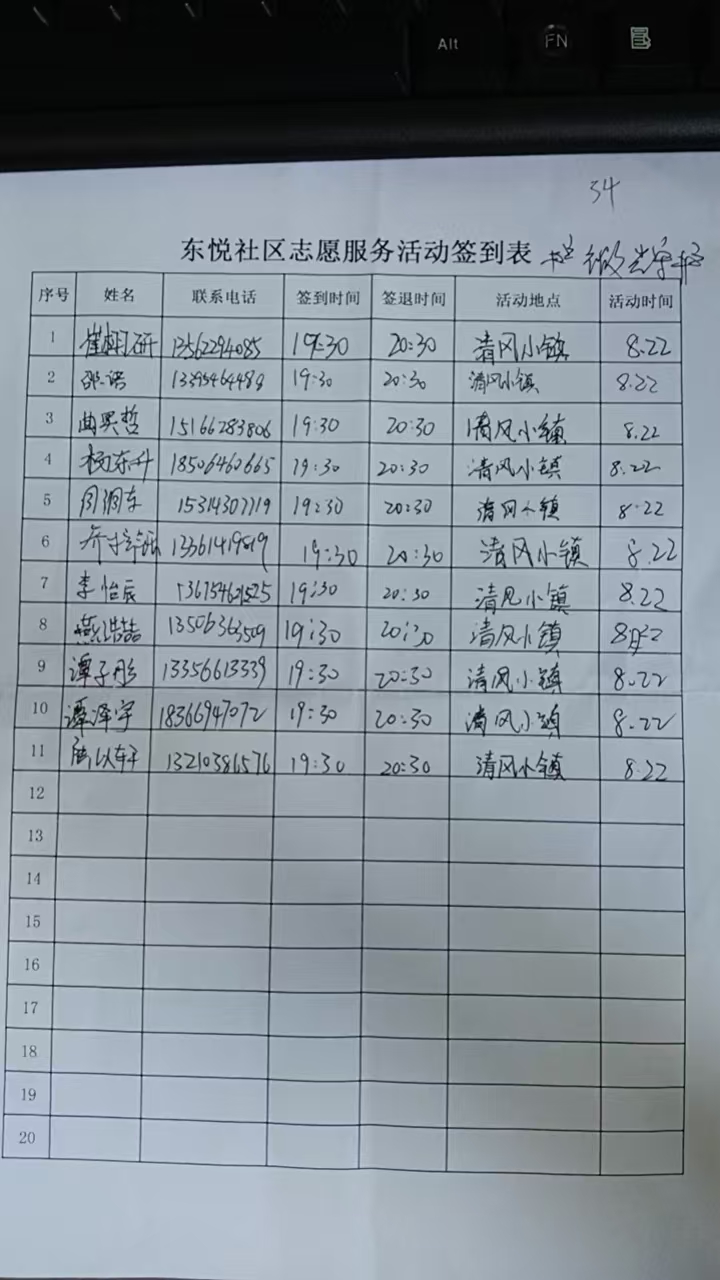 Alt FN
34
东悦社区志愿服务活动签到表
序号 姓名 联系电话 签到时间 签退时间 活动地点 活动时间
1 崔栩研 13562294085 19:30 20:30 清风小镇 8.22
2 邵诺 13395464489 19:30 20:30 清风小镇 8.22
3 曲昊哲 15166283806 19:30 20:30 清风小镇 8.22
4 杨东升 18506460665 19:30 20:30 清风小镇 8.22
5 15314307719 19:30 20:30 清风小镇 8.22
6 19:30 20:30 清风小镇 8.22
7 李怡辰 19:30 20:30 清风小镇 8.22
8 燕浩喆 13506363509 19:30 20:30 清风小镇
9 谭子彤 13356613339 19:30 20:30 清风小镇 8.22
10 谭泽宇 18366947072 19:30 20:30 清风小镇 8.22
11 13210386576 19:30 20:30 清风小镇 8.22
12
13
14
15
16
17
18
19
20